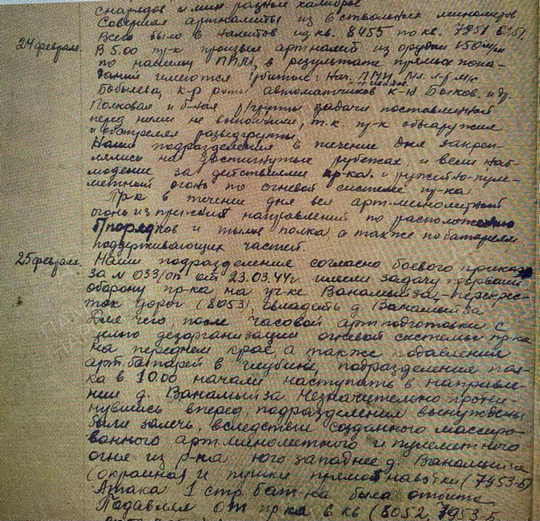 снарядов и мин разных калибров
Совершал артналеты из 6 ствольных минометов
Всего было 8 налетов из кв. 8455 по кв. 7951
24 февраля. В 5.00 пр-к произвел артналет из орудий 150 м/м
по нашему ППМ, в результате прямого попа-
дания имеются убитые: Нач. ПМП
к-р роты автоматчиков к-н Быков. и др.
Полковая и б-ная р/группы задачи поставленной
перед ними не выполнили, т.к. пр-к обнаружил
и обстрелял разведгруппы.
Наши подразделения в течение дня закреп-
лялись на достигнутых рубежах и вели наб-
людение за действиями пр-ка и ружейно-пуле-
метный огонь по огневой системе пр-ка
Пр-к в течение дня вел арт-минометный
огонь из прежних направлений по расположению
б/порядков и тылам полка а также по батареям
поддерживающих частей.
25 февраля. Наши подразделения согласно боевого приказа
за № 033/оп от 23.03.44г. имели задачу прорвать
оборону пр-ка на уч-ке Ванамыйза, перекрес-
ток дорог (8053) овладеть д. Ванамыйза
Для чего после часовой артподготовки с
целью дезорганизации огневой системы пр-ка
на переднем крае, а также подавления
арт. батарей в глубине, подразделения пол-
ка в 10.00 начали наступать в направле-
нии д. Ванамыйза. Незначительно продви-
нувшись вперед, подразделения вынуждены
были залечь, вследствие созданного массиро-
ванного арт. минометного и пулеметного
огня из р-на юго западнее д. Ванамыйза
(окраина) и пушки прямой наводки (7953-б)
Атака 1 стр. бат-на была отбита
Подавлен от пр-ка в кв (8052, 7953-б